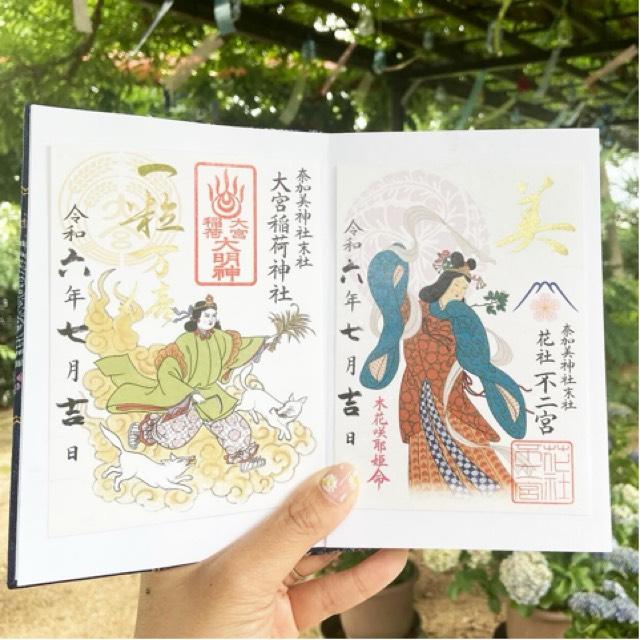 奈加美神社末社
大宮稲荷神社
大宮
稲荷
大明神
一粒万喜
令和六年七月吉日
美
奈加美神社末社
花社 不二宮
令和六年七月吉日
木花咲耶姫命
花社
不二宮